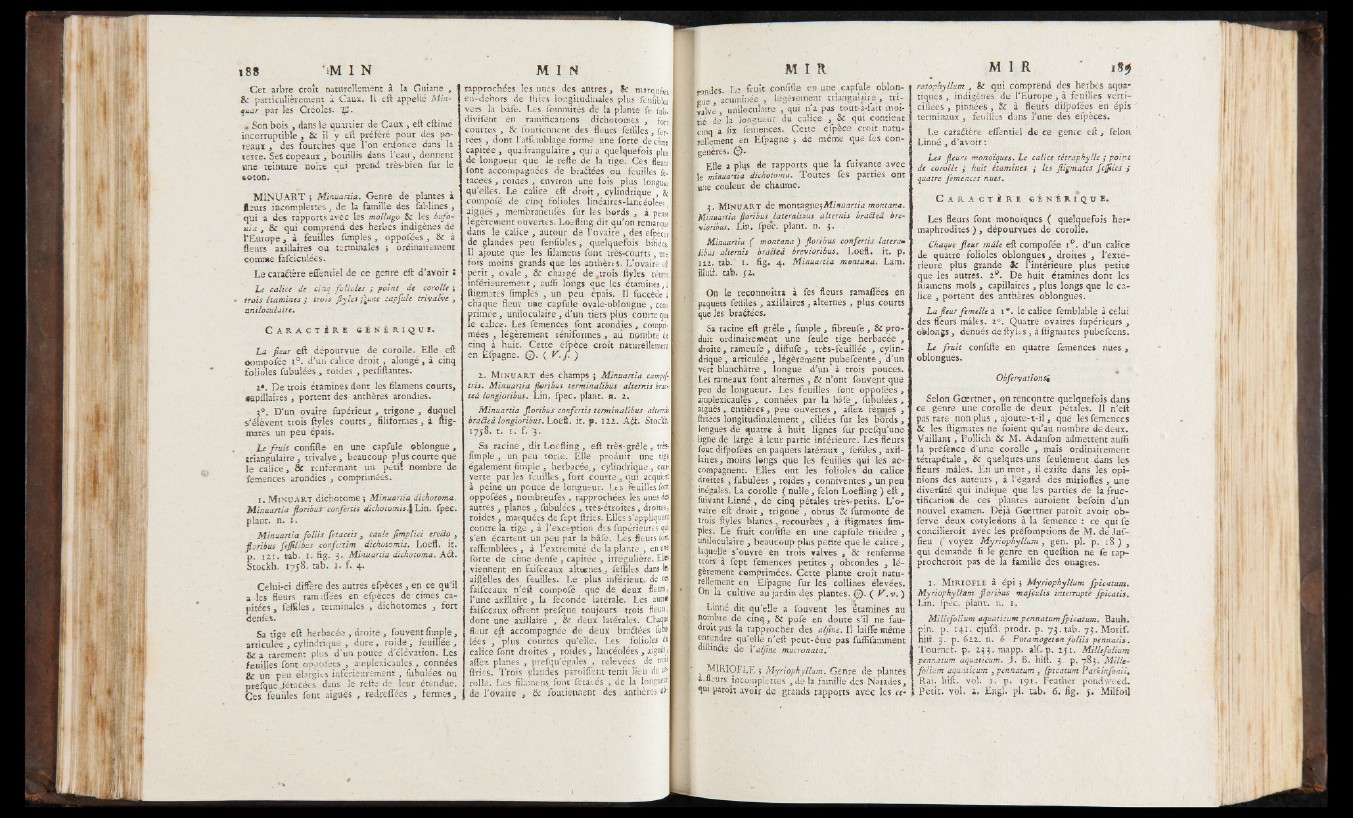 188 MIN
Cet arbre croît naturellement à la Guiane ,
& particulièrement à Caux. Il eſt appellé Min-
quar par les Créoles. ♄.
« Son bois , dans le quartier de Caux , eſt eſtimé
incorruptible , & il y eſt préféré pour des po-
teaux , des fourches que l'on enfonce dans la
terre. Ses copeaux , bouillis dans l'eau , donnent
une teinture noire qui prend très-bien ſur le
coton.
MINUART ; Minuartia. Genre de plantes à
fleurs incomplettes , de la famille des ſablines ,
qui a des rapports avec les mollugo & les bufo-
nia , & qui comprend des herbes indigènes de
l'Europe , à feuilles ſimples , oppoſées , & à
fleurs axillaires ou terminales ; ordinairement
comme faſciculées.
Le caractère eſſentiel de ce genre eſt d'avoir :
Le calice de cinq folioles ; point de corolle ;
trois étamines ; trois ſtyles ; une capſule trivalve ,
uniloculaire.
CARACTÈRE GÉNÉRIQUE.
La fleur eſt dépourvue de corolle. Elle eſt
compoſée 1°. d'un calice droit , alongé , à cinq
folioles ſubulées , roides , perſiſtantes.
2°. De trois étamines dont les filamens courts,
capillaires , portent des anthères arondies.
3°. D'un ovaire ſupérieur , trigone , duquel
s'élèvent trois ſtyles courts , filiformes , à ſtig-
mates un peu épais.
Le fruit conſiſte en une capſule oblongue ,
triangulaire , trivalve , beaucoup plus courte que
le calice , & renfermant un petit nombre de
ſemences arondies , comprimées.
1. MINUART dichotome ; Minuartia dichotoma.
Minuartia floribus confertis dichotomis. Lin. ſpec.
plant. n. 1.
Minuartia foliis ſetaceis , caule ſimplici erecto ,
floribus ſeſſilibus confertim dichotomis. Loefl. it.
p. 121. tab. 1. fig. 3. Minuartia dichotoma. Act.
Stockh. 1758. tab. 1. f. 4.
Celui-ci diffère des autres eſpèces , en ce qu'il
a les fleurs ramaſſées en eſpèces de cimes ca-
pitées , ſeſſiles , terminales , dichotomes , fort
denſes.
Sa tige eſt herbacée , droite , ſouvent ſimple ,
articulée , cylindrique , dure , roide , feuillée ,
& a rarement plus d'un pouce d'élévation. Les
feuilles ſont oppoſées , amplexicaules , connées
& un peu élargies inférieurement , ſubulées ou
preſque ſétacées dans le reſte de leur étendue.
Ces feuilles ſont aiguës , redreſſées , fermes ,
MIN
rapprochées les unes des autres , & marquées
en-dehors de ſtries longitudinales plus ſenſibles
vers la baſe. Les ſommités de la plante ſe ſub-
diviſent en ramifications dichotomes , fort
courtes , & ſoutiennent des fleurs ſeſſiles , ſer-
rées , dont l'aſſemblage forme une ſorte de cime
capitée , quadrangulaire , qui a quelquefois plus
de longueur que le reſte de la tige. Ces fleurs
ſont accompagnées de bractées ou feuilles ſé-
tacées , roides , environ une fois plus longues
qu'elles. Le calice eſt droit , cylindrique , &
compoſé de cinq folioles linéaires-lancéolées ,
aiguës , membraneuſes ſur les bords , à peine
légèrement ouvertes. Loefling dit qu'on remarque
dans le calice , autour de l'ovaire , des eſpèces
de glandes peu ſenſibles , quelquefois bifides.
Il ajoute que les filamens ſont très-courts , une
fois moins grands que les anthères. L'ovaire eſt
petit , ovale , & chargé de trois ſtyles réunis
inférieurement , auſſi longs que les étamines , à
ſtigmates ſimples , un peu épais. Il ſuccède à
chaque fleur une capſule ovale-oblongue , com-
primée , uniloculaire , d'un tiers plus courte que
le calice. Les ſemences ſont arondies , compri-
mées , légèrement réniformes , au nombre de
cinq à huit. Cette eſpèce croît naturellement
en Eſpagne. ☉. ( V. ſ. )
2. MINUART des champs ; Minuartia campeſ-
tris. Minuartia floribus terminalibus alternis brac-
teâ longioribus. Lin. ſpec. plant. n. 2.
Minuartia floribus confertis terminalibus alternis
bracteâ longioribus. Loefl. it. p. 122. Act. Stockh.
1758. t. 1. f. 3.
Sa racine , dit Loefling , eſt très-grêle , très-
ſimple , un peu torſe. Elle produit une tige
également ſimple , herbacée , cylindrique , cou-
verte par les feuilles , fort courte , qui acquiert
à peine un pouce de longueur. Les feuilles ſont
oppoſées , nombreuſes , rapprochées les unes des
autres , planes , ſubulées , très-étroites , droites ,
roides , marquées de ſept ſtries. Elles s'appliquent
contre la tige , à l'exception des ſupérieures qui
s'en écartent un peu par la baſe. Les fleurs ſont
raſſemblées , à l'extrémité de la plante , en une
ſorte de cime denſe , capitée , irrégulière. Elles
viennent en faiſceaux alternes , ſeſſiles dans les
aiſſelles des feuilles. Le plus inférieur de ces
faiſceaux n'eſt compoſé que de deux fleurs ,
l'une axillaire , la ſeconde latérale. Les autres
faiſceaux offrent preſque toujours trois fleurs ,
dont une axillaire , & deux latérales. Chaque
fleur eſt accompagnée de deux bractées ſubu-
lées , plus courtes qu'elle. Les folioles du
calice ſont droites , roides , lancéolées , aiguës ,
aſſez planes , preſqu'égales , relevées de trois
ſtries. Trois glandes paroiſſent tenir lieu de co-
rolle. Les filamens ſont ſétacés , de la longueur
de l'ovaire , & ſoutiennent des anthères
MIR
rondes. Le fruit conſiſte en une capſule oblon-
gue , acuminée , légèrement triangulaire , tri-
valve , uniloculaire , qui n'a pas tout-à-fait moi-
tié de la longueur du calice , & qui contient
cinq à ſix ſemences. Cette eſpèce croît natu-
rellement en Eſpagne ; de même que ſes con-
génères. ☉.
Elle a plus de rapports que la ſuivante avec
le minuartia dichotoma. Toutes ſes parties ont
une couleur de chaume.
3. MINUART de montagne; Minuartia montana.
Minuartia floribus lateralibus alternis bracteâ bre-
vioribus. Lin. ſpec. plant. n. 3.
Minuartia ( montana ) floribus confertis latera-
libus alternis bracteâ brevioribus. Loefl. it. p.
122. tab. 1. fig. 4. Minuartia montana. Lam.
illuſt. tab. 52.
On le reconnoîtra à ſes fleurs ramaſſées en
paquets ſeſſiles , axillaires , alternes , plus courts
que les bractées.
Sa racine eſt grêle , ſimple , fibreuſe , & pro-
duit ordinairement une ſeule tige herbacée ,
droite , rameuſe , diffuſe , très-feuillée , cylin-
drique , articulée , légèrement pubeſcente , d'un
vert blanchâtre , longue d'un à trois pouces.
Les rameaux ſont alternes , & n'ont ſouvent que
peu de longueur. Les feuilles ſont oppoſées ,
amplexicaules , connées par la baſe , ſubulées ,
aiguës , entières , peu ouvertes , aſſez fermes ,
ſtriées longitudinalement , ciliées ſur les bords ,
longues de quatre à huit lignes ſur preſqu'une
ligne de large à leur partie inférieure. Les fleurs
ſont diſpoſées en paquets latéraux , ſeſſiles , axil-
laires , moins longs que les feuilles qui les ac-
compagnent. Elles ont les folioles du calice
droites , ſubulées , roides , conniventes , un peu
inégales. La corolle ( nulle , ſelon Loefling ) eſt ,
ſuivant Linné , de cinq pétales très-petits. L'o-
vaire eſt droit , trigone , obtus & ſurmonté de
trois ſtyles blancs , recourbés , à ſtigmates ſim-
ples. Le fruit conſiſte en une capſule trièdre ,
uniloculaire , beaucoup plus petite que le calice ,
laquelle s'ouvre en trois valves , & renferme
trois à ſept ſemences petites , obrondes , lé-
gèrement comprimées. Cette plante croît natu-
rellement en Eſpagne ſur les collines élevées.
On la cultive au jardin des plantes. ☉. ( V. v. )
Linné dit qu'elle a ſouvent les étamines au
nombre de cinq , & poſe en doute s'il ne fau-
droit pas la rapprocher des alſine. Il laiſſe même
entendre qu'elle n'eſt peut-être pas ſuffiſamment
diſtincte de l'alſine mucronata.
MIRIOFLE ; Myriophyllum. Genre de plantes
à fleurs incomplettes , de la famille des Naïades ,
qui paroît avoir de grands rapports avec les ce-
MIR 189
ratophyllum , & qui comprend des herbes aqua-
tiques , indigènes de l'Europe , à feuilles verti-
cillées , pinnées , & à fleurs diſpoſées en épis
terminaux , feuillés dans l'une des eſpèces.
Le caractère eſſentiel de ce genre eſt , ſelon
Linné , d'avoir :
Les fleurs monoïques. Le calice tétraphylle ; point
de corolle ; huit étamines ; les ſtigmates ſeſſiles ;
quatre ſemences nues.
CARACTÈRE GÉNÉRIQUE.
Les fleurs ſont monoïques ( quelquefois her-
maphrodites ) , dépourvues de corolle.
Chaque fleur mâle eſt compoſée 1°. d'un calice
de quatre folioles oblongues , droites , l'exté-
rieure plus grande & l'intérieure plus petite
que les autres. 2°. De huit étamines dont les
filamens mols , capillaires , plus longs que le ca-
lice , portent des anthères oblongues.
La fleur femelle a 1°. le calice ſemblable à celui
des fleurs mâles. 2°. Quatre ovaires ſupérieurs ,
oblongs , dénués de ſtyles , à ſtigmates pubeſcens.
Le fruit conſiſte en quatre ſemences nues ,
oblongues.
Obſervations.
Selon Gœrtner , on rencontre quelquefois dans
ce genre une corolle de deux pétales. Il n'eſt
pas rare non plus , ajoute-t-il , que les ſemences
& les ſtigmates ne ſoient qu'au nombre de deux.
Vaillant , Pollich & M. Adanſon admettent auſſi
la préſence d'une corolle , mais ordinairement
tétrapétale , & quelques-uns ſeulement dans les
fleurs mâles. En un mot , il exiſte dans les opi-
nions des auteurs , à l'égard des miriofles , une
diverſité qui indique que les parties de la fruc-
tification de ces plantes auroient beſoin d'un
nouvel examen. Déjà Gœrtner paroît avoir ob-
ſervé deux cotyledons à la ſemence : ce qui ſe
concilieroit avec les préſomptions de M. de Juſ-
ſieu ( voyez Myriophyllum , gen. pl. p. 18 ) ,
qui demande ſi le genre en queſtion ne ſe rap-
procheroit pas de la famille des onagres.
1. MIRIOFLE à épi ; Myriophyllum ſpicatum.
Myriophyllum floribus maſculis interruptè ſpicatis.
Lin. ſpec. plant. n. 1.
Millefolium aquaticum pennatum ſpicatum. Bauh.
pin. p. 141. ejuſd. prodr. p. 73. tab. 73. Moriſ.
hiſt. 3. p. 622. n. 6. Potamogeton foliis pennatis.
Tournef. p. 233. mapp. alſ. p. 251. Millefolium
pennatum aquaticum. J. B. hiſt. 3. p. 783. Mille-
folium aquaticum , pennatum , ſpicatum Parkinſonii.
Rai. hiſt. vol. 1. p. 191. Feather pondweed.
Petit. vol. 2. Engl. pl. tab. 6. fig. 5. Milfoil